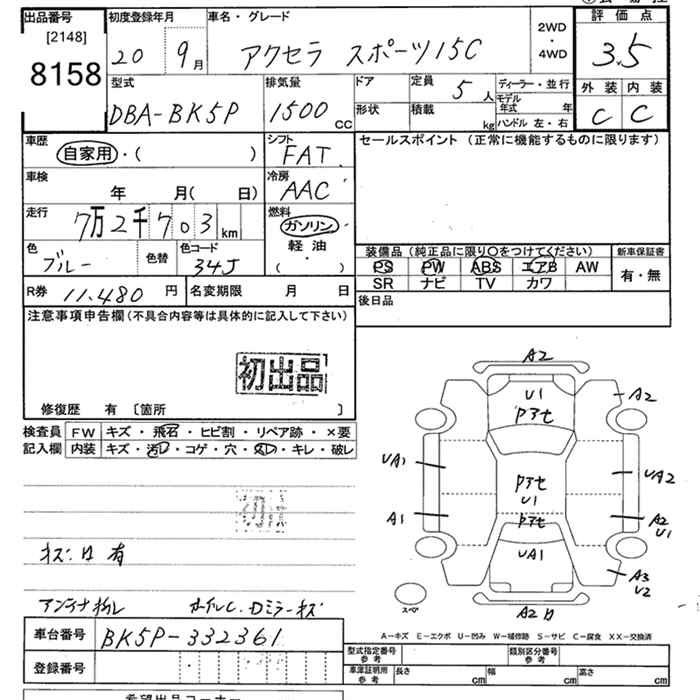 出品番号 初度登録年月 車名・グレード 評価点
[2148] 20 9月 アクセラ スポーツ15C 2WD・4WD 3.5
8158
型式 排気量 ドア 定員 5人 ディーラー・並行 外装 内装
DBA-BK5P 1500cc 形状 積載 kg モデル年式 年 C C
ハンドル 左・右
車歴 シフト セールスポイント (正常に機能するものに限ります)
自家用・( ) FAT
車検 冷房
年 月( 日) AAC
走行 燃料
7万2千703km ガソリン
色 色替 色コード 軽油・ 装備品 (純正品に限り○をつけてください) 新車保証書
ブルー 34J ( ) PS PW ABS エアB AW 有・無
SR ナビ TV カワ
R券 11,480円 名変期限 月 日 後日品
注意事項申告欄(不具合内容等は具体的に記入して下さい)
初出品
修復歴 有 〔箇所 〕
検査員 FW キズ・飛石・ヒビ割・リペア跡・×要
記入欄 内装 キズ・汚レ・コゲ・穴・スレ・キレ・破レ
A2
U1
A2
UA1
UA2
U1
A1
A2
U1
UA1
A3
U2
スペア
A2
有
A-キズ E-エクボ U-凹み W-補修跡 S-サビ C-腐食 XX-交換済
車台番号 BK5P-332361
型式指定番号 参考 類別区分番号 参考
登録番号 車庫証明用 参考 長さ cm 幅 cm 高さ cm
希望出品コーナー